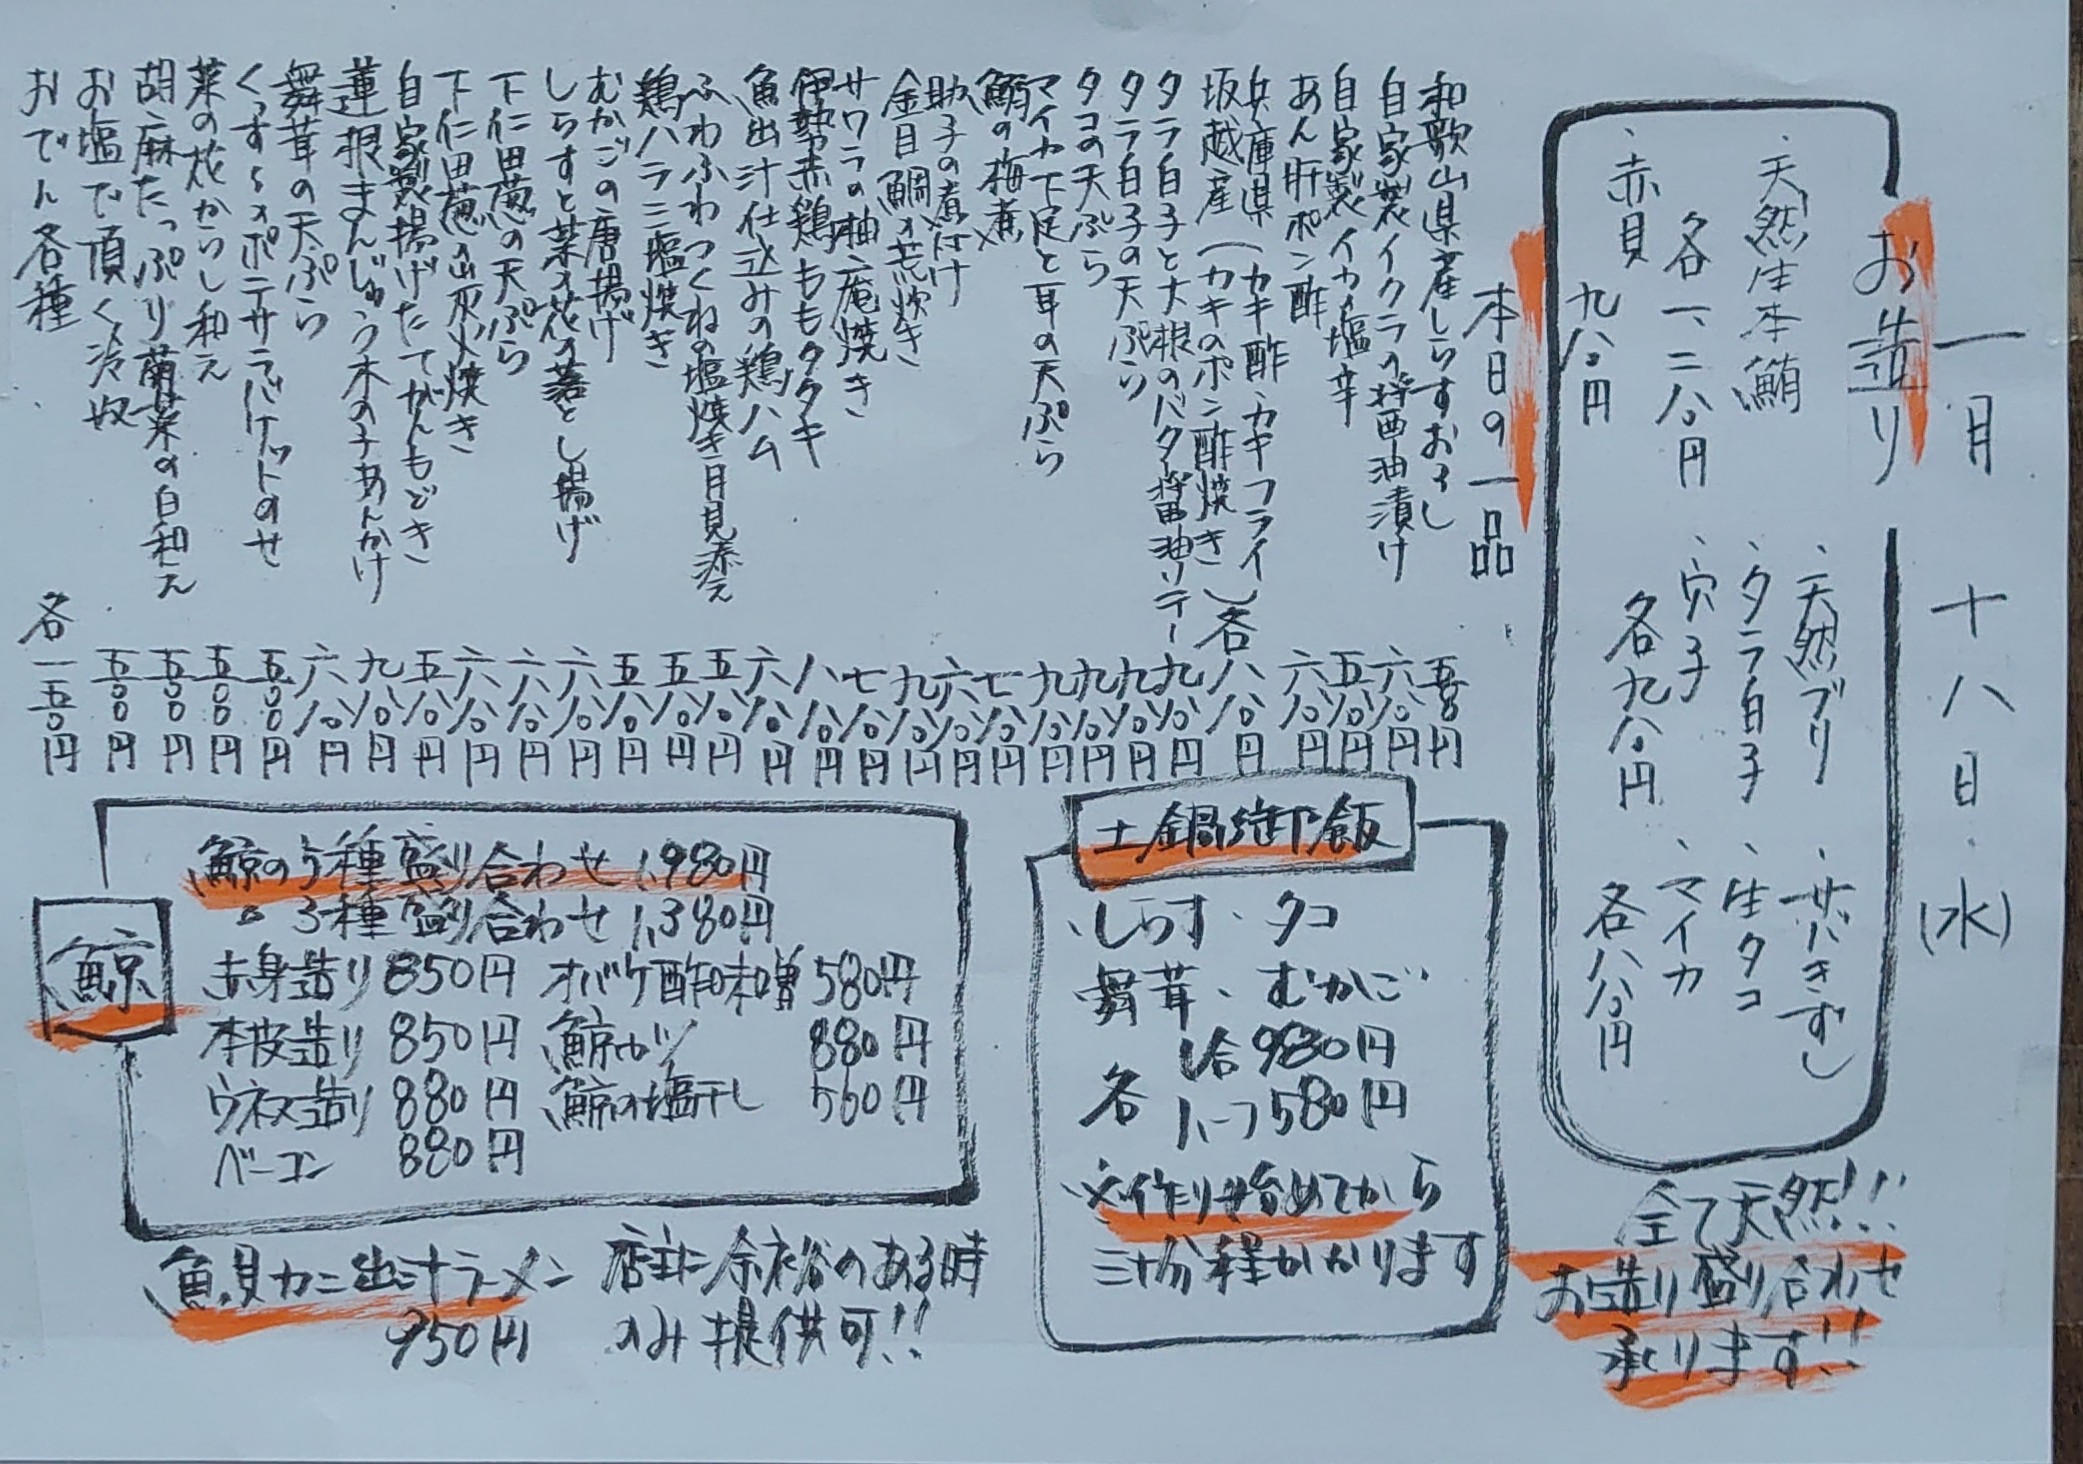 一月 十八日(水)
お造り
、天然生本鮪
各一、二八〇円
、赤貝
九八〇円
、天然ブリ
、タラ白子
、穴子
各九八〇円
、サバきずし
、生タコ
、マイカ
各八八〇円
全て天然!!
お造り盛り合わせ
承ります!!
本日の一品
和歌山県産しらすおろし 五八〇円
自家製イクラの醤油漬け 六八〇円
自家製イカの塩辛 五八〇円
あん肝ポン酢 六八〇円
兵庫県坂越産(カキ酢、カキフライ、カキのポン酢焼き)各八八〇円
タラ白子と大根のバタ醤油ソテー 九八〇円
タラ白子の天ぷら 九八〇円
タコの天ぷら 九八〇円
マイカ下足と耳の天ぷら 九八〇円
鯛の梅煮 七八〇円
助子の煮付け 六八〇円
金目鯛の荒炊き 九八〇円
サワラの柚庵焼き 七八〇円
伊勢赤鶏ももタタキ 八八〇円
魚出汁仕込みの鶏ハム 六八〇円
ふわふわつくねの塩焼き 月見添え 五八〇円
鶏ハラミ塩焼き 五八〇円
むかごの唐揚げ 五八〇円
しらすと菜の花の落とし揚げ 六八〇円
下仁田葱の天ぷら 六八〇円
下仁田葱の炭火焼き 六八〇円
自家製揚げたてがんもどき 五八〇円
蓮根まんじゅう木の子あんかけ 九八〇円
舞茸の天ぷら 六八〇円
くっすらポニサラバケットのせ 五〇〇円
菜の花からし和え 五〇〇円
胡麻たっぷり菊菜の白和え 五〇〇円
お塩で頂く冷奴 五〇〇円
おでん各種 各一五〇円
土鍋御飯
、しらす、タコ
舞茸、むかご
各
1合980円
ハーフ580円
※作り始めてから
三十分程かかります
鯨
鯨の5種盛り合わせ 1,980円
〃3種盛り合わせ 1,380円
赤身造り 850円 オバケ酢味噌 580円
本皮造り 850円 鯨カツ 880円
ウネス造り 880円 鯨の塩干し 560円
ベーコン 880円
魚貝カニ出汁ラーメン
950円
店主に余裕のある時
のみ提供可!!